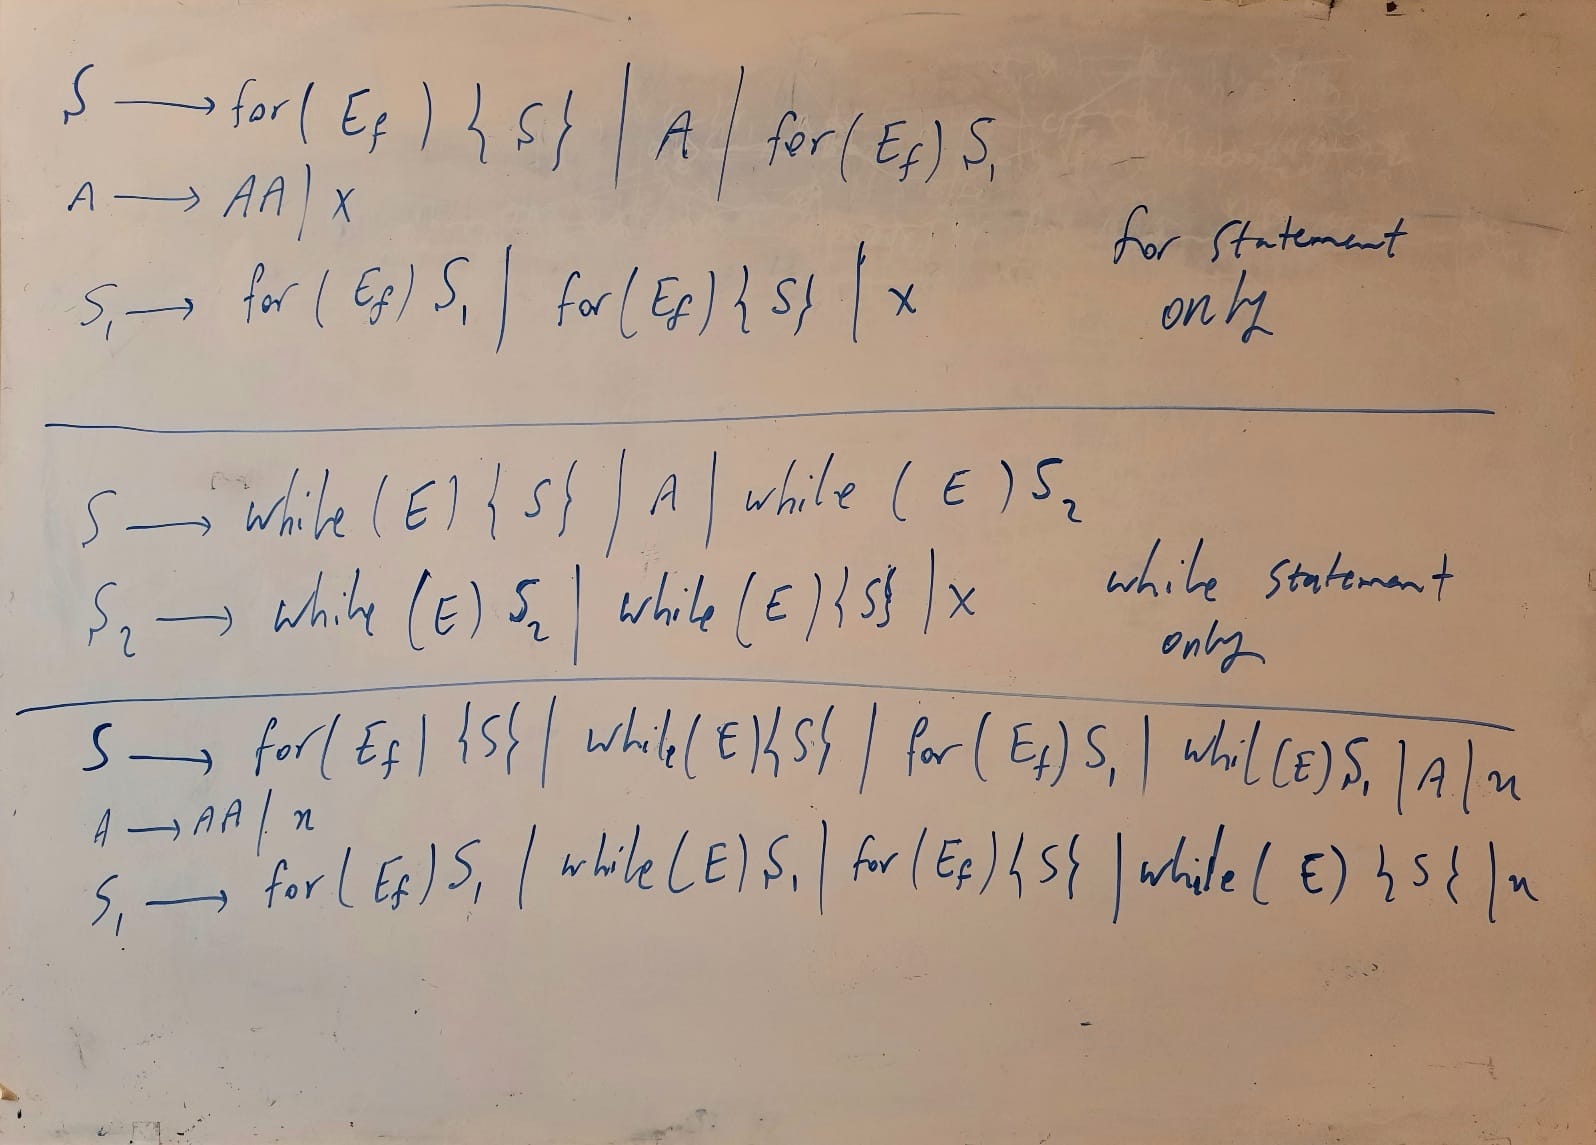 S → for( E_f ) { S } | A | for( E_f ) S₁
A → AA | x
S₁ → for ( E_f ) S₁ | for( E_f ) { S } | x
for statement
only
S → while ( E ) { S } | A | while ( E ) S₂
S₂ → while ( E ) S₂ | while ( E ) { S } | x
while statement
only
S → for( E_f ) { S } | while( E ) { S } | for ( E_f ) S₁ | whil( E ) S₁ | A | x
A → AA | x
S₁ → for ( E_f ) S₁ | while ( E ) S₁ | for ( E_f ) { S } | while ( E ) { S } | x